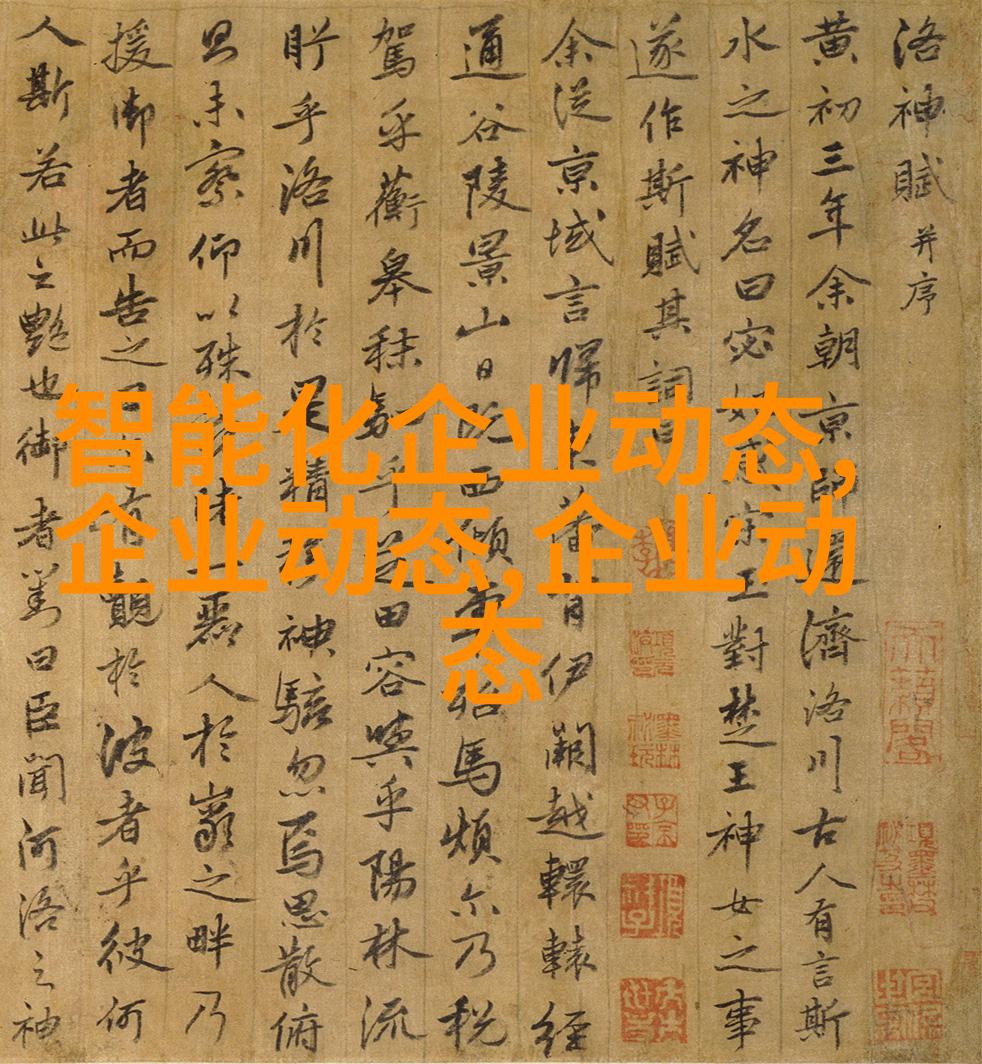 洛神賦 并序
黄初三年余朝京師還濟洛川古人有言斯
水之神名曰宓妃感宋玉對楚王神女之事
遂作斯賦其詞曰
余從京域言歸東藩背伊闕越轘轅經
通谷陵景山日既西傾車殆馬煩尔乃税
駕乎蘅皋秣駟乎芝田容與乎陽林流
眄乎洛川於是精移神駭忽焉思散俯
則未察仰以殊觀睹一麗人於巖之畔乃
援御者而告之曰尔有覿於彼者乎彼何
人斯若此之艷也御者對曰臣聞河洛之神
智能化企业动态,
企业动态,企业动
态